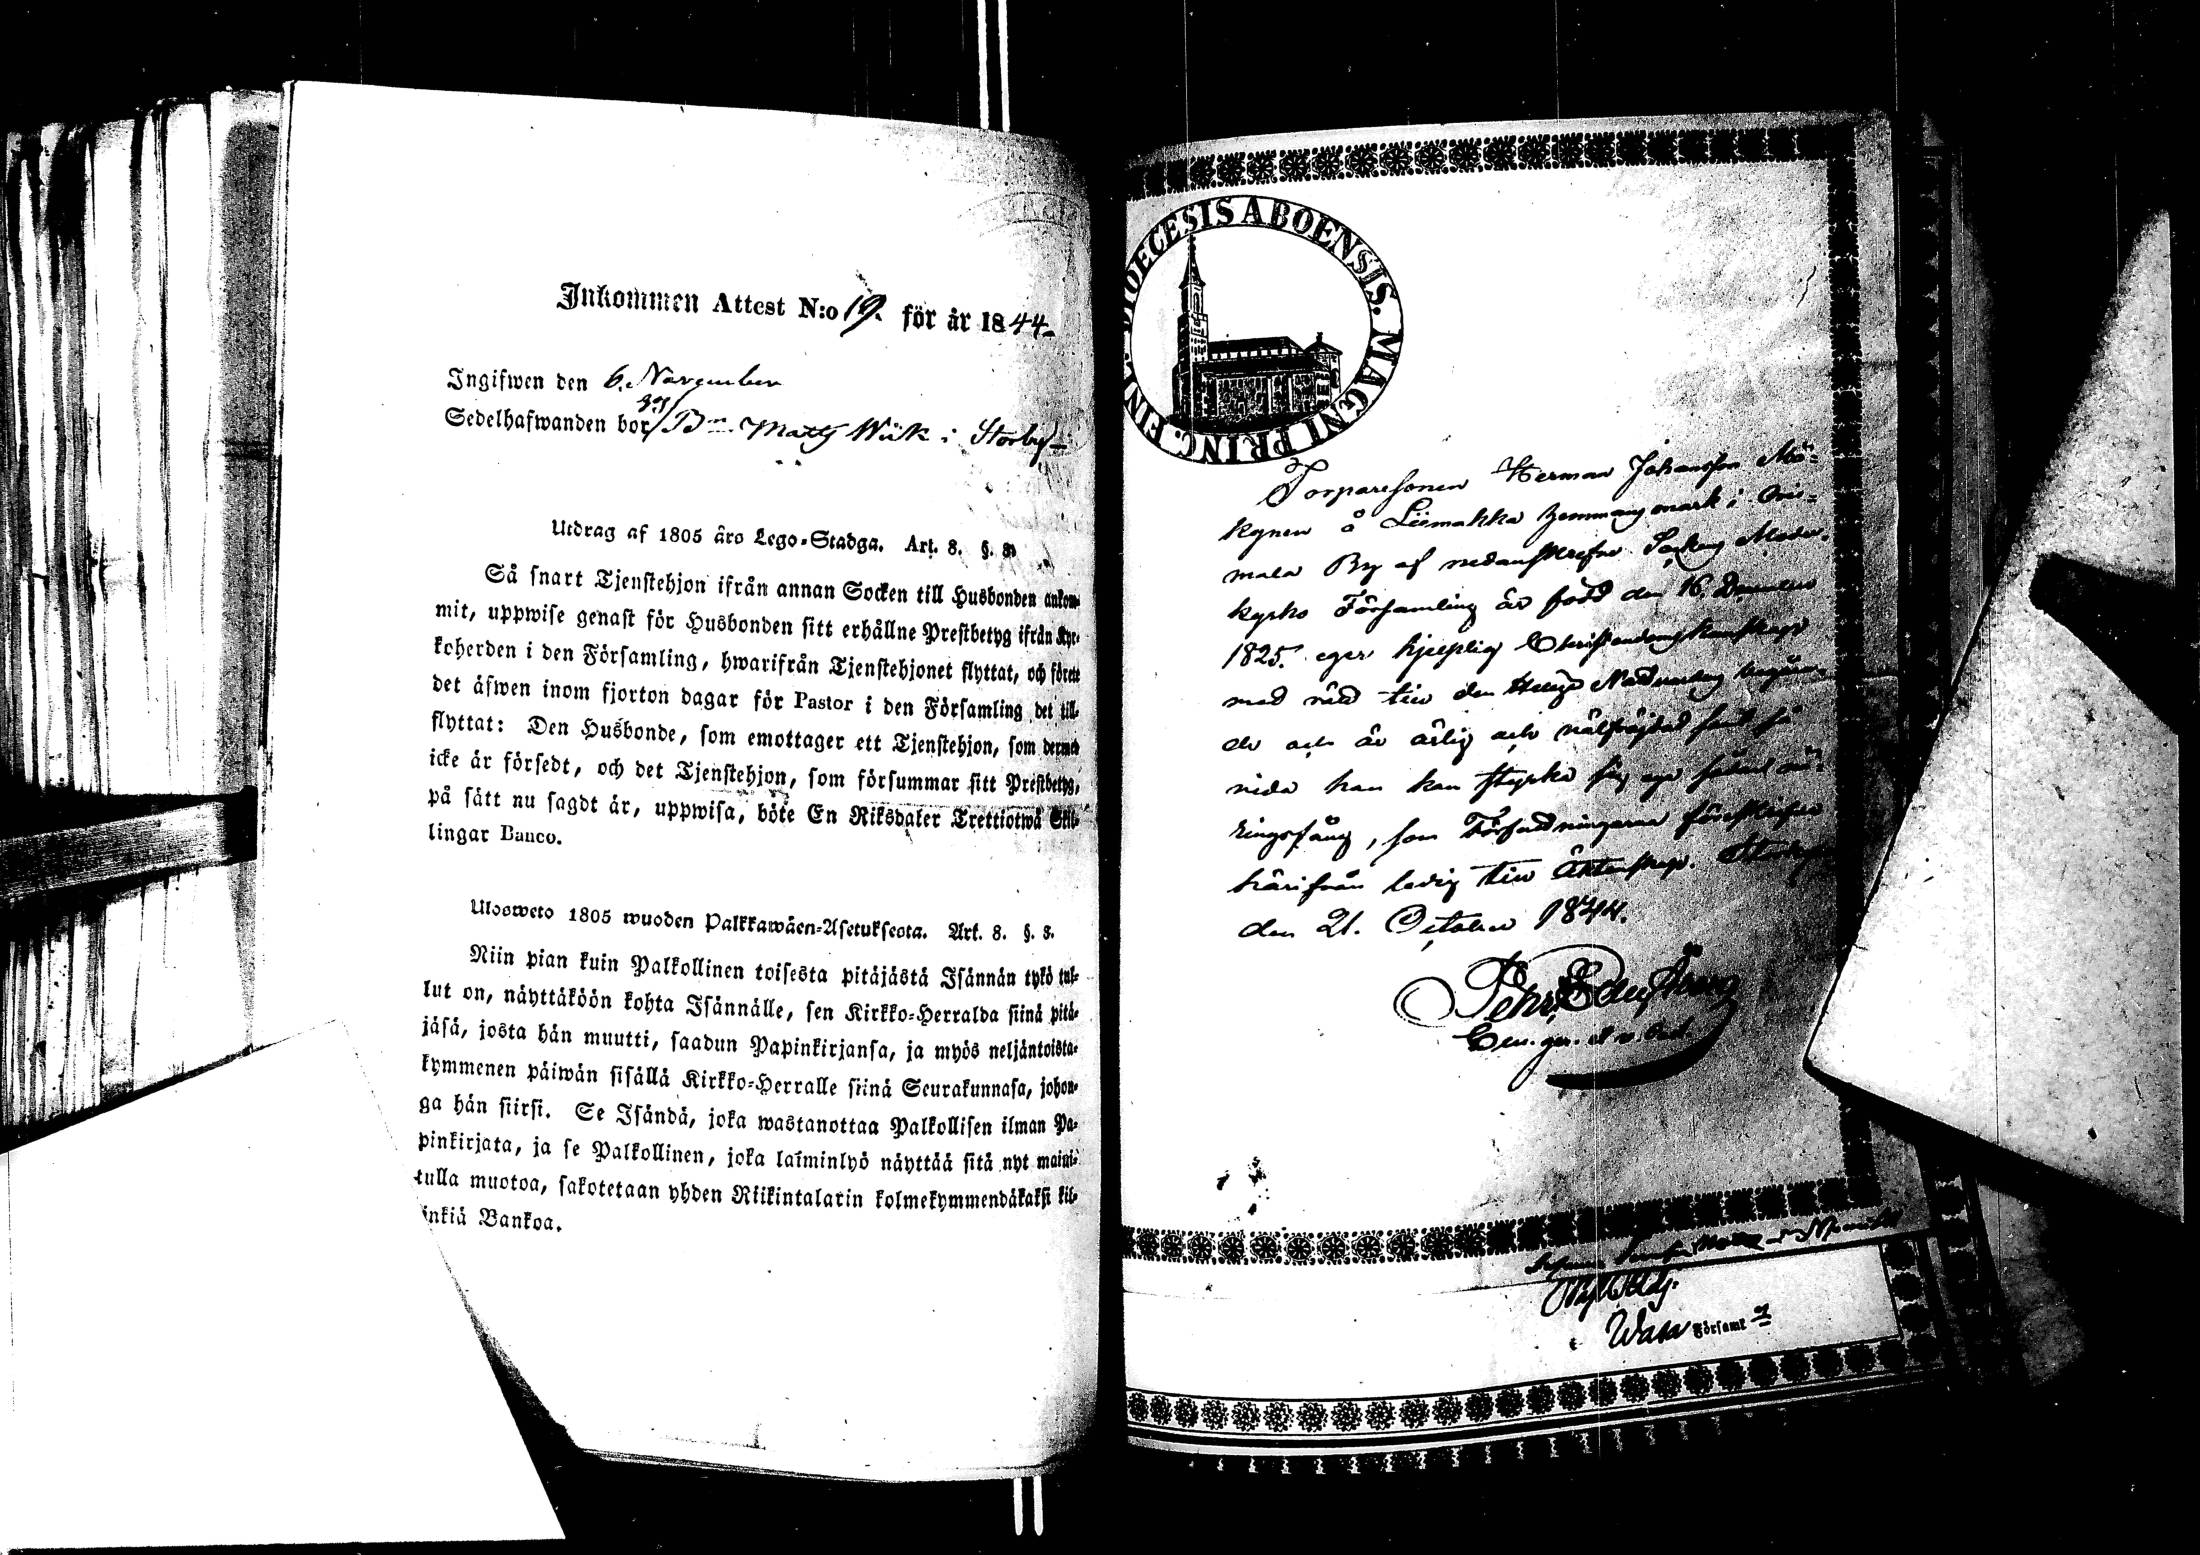 Inkommen Attest N:o 19. för år 1844.
Ingifwen den 6. November
Sedelhafwanden bor Bn Matts Wiik i Storby
Utdrag af 1805 års Lego-Stadga. Art. 8. §. 8.
Så snart Tjenstehjon ifrån annan Socken till Husbonden ankom-
mit, uppwise genast för Husbonden sitt erhållne Prestbetyg ifrån Kyr-
koherden i den Församling, hwarifrån Tjenstehjonet flyttat, och förete
det äfwen inom fjorton dagar för Pastor i den Församling det till-
flyttat: Den Husbonde, som emottager ett Tjenstehjon, som dermed
icke är försedt, och det Tjenstehjon, som försummar sitt Prestbetyg,
på sätt nu sagdt är, uppwisa, böte En Riksdaler Trettiotwå Skil-
lingar Banco.
Ulosweto 1805 wuoden Palkkawäen-Asetuksesta. Art. 8. §. 8.
Niin pian kuin Palkollinen toisesta pitäjästä Isännän tykö tul-
lut on, näyttäköön kohta Isännälle, sen Kirkko-Herralda siinä pitä-
jäsä, josta hän muutti, saadun Papinkirjansa, ja myös neljäntoista-
kymmenen päiwän sisällä Kirkko-Herralle siinä Seurakunnasa, johon-
ga hän siirsi. Se Isändä, joka wastanottaa Palkollisen ilman Pa-
pinkirjata, ja se Palkollinen, joka laiminlyö näyttää sitä nyt maini-
tulla muotoa, sakotetaan yhden Riikintalarin kolmekymmendäkaksi kil-
inkiä Bankoa.
DIOECESIS ABOENSIS. MAGNI PRINC. FINL.
Torparesonen Herman Johansson Mö-
kynen å Liimakka hemmans mark i Ori-
mala By af nedanskrefne Sockens Moder-
kyrko Församling är född den 16 December
1825. eger hjelplig Christendoms kunskap
med rätt till den Helige Nattvardens begåen-
de och är ärlig och välfrejdad samt så
vida han kan styrka sig ega sådant nä-
ringsfång, som Författningarna föreskrifva
härifrån ledig till Äktenskap. Storkyro
den 21. October 1844.
Pehr
Wasa Församl